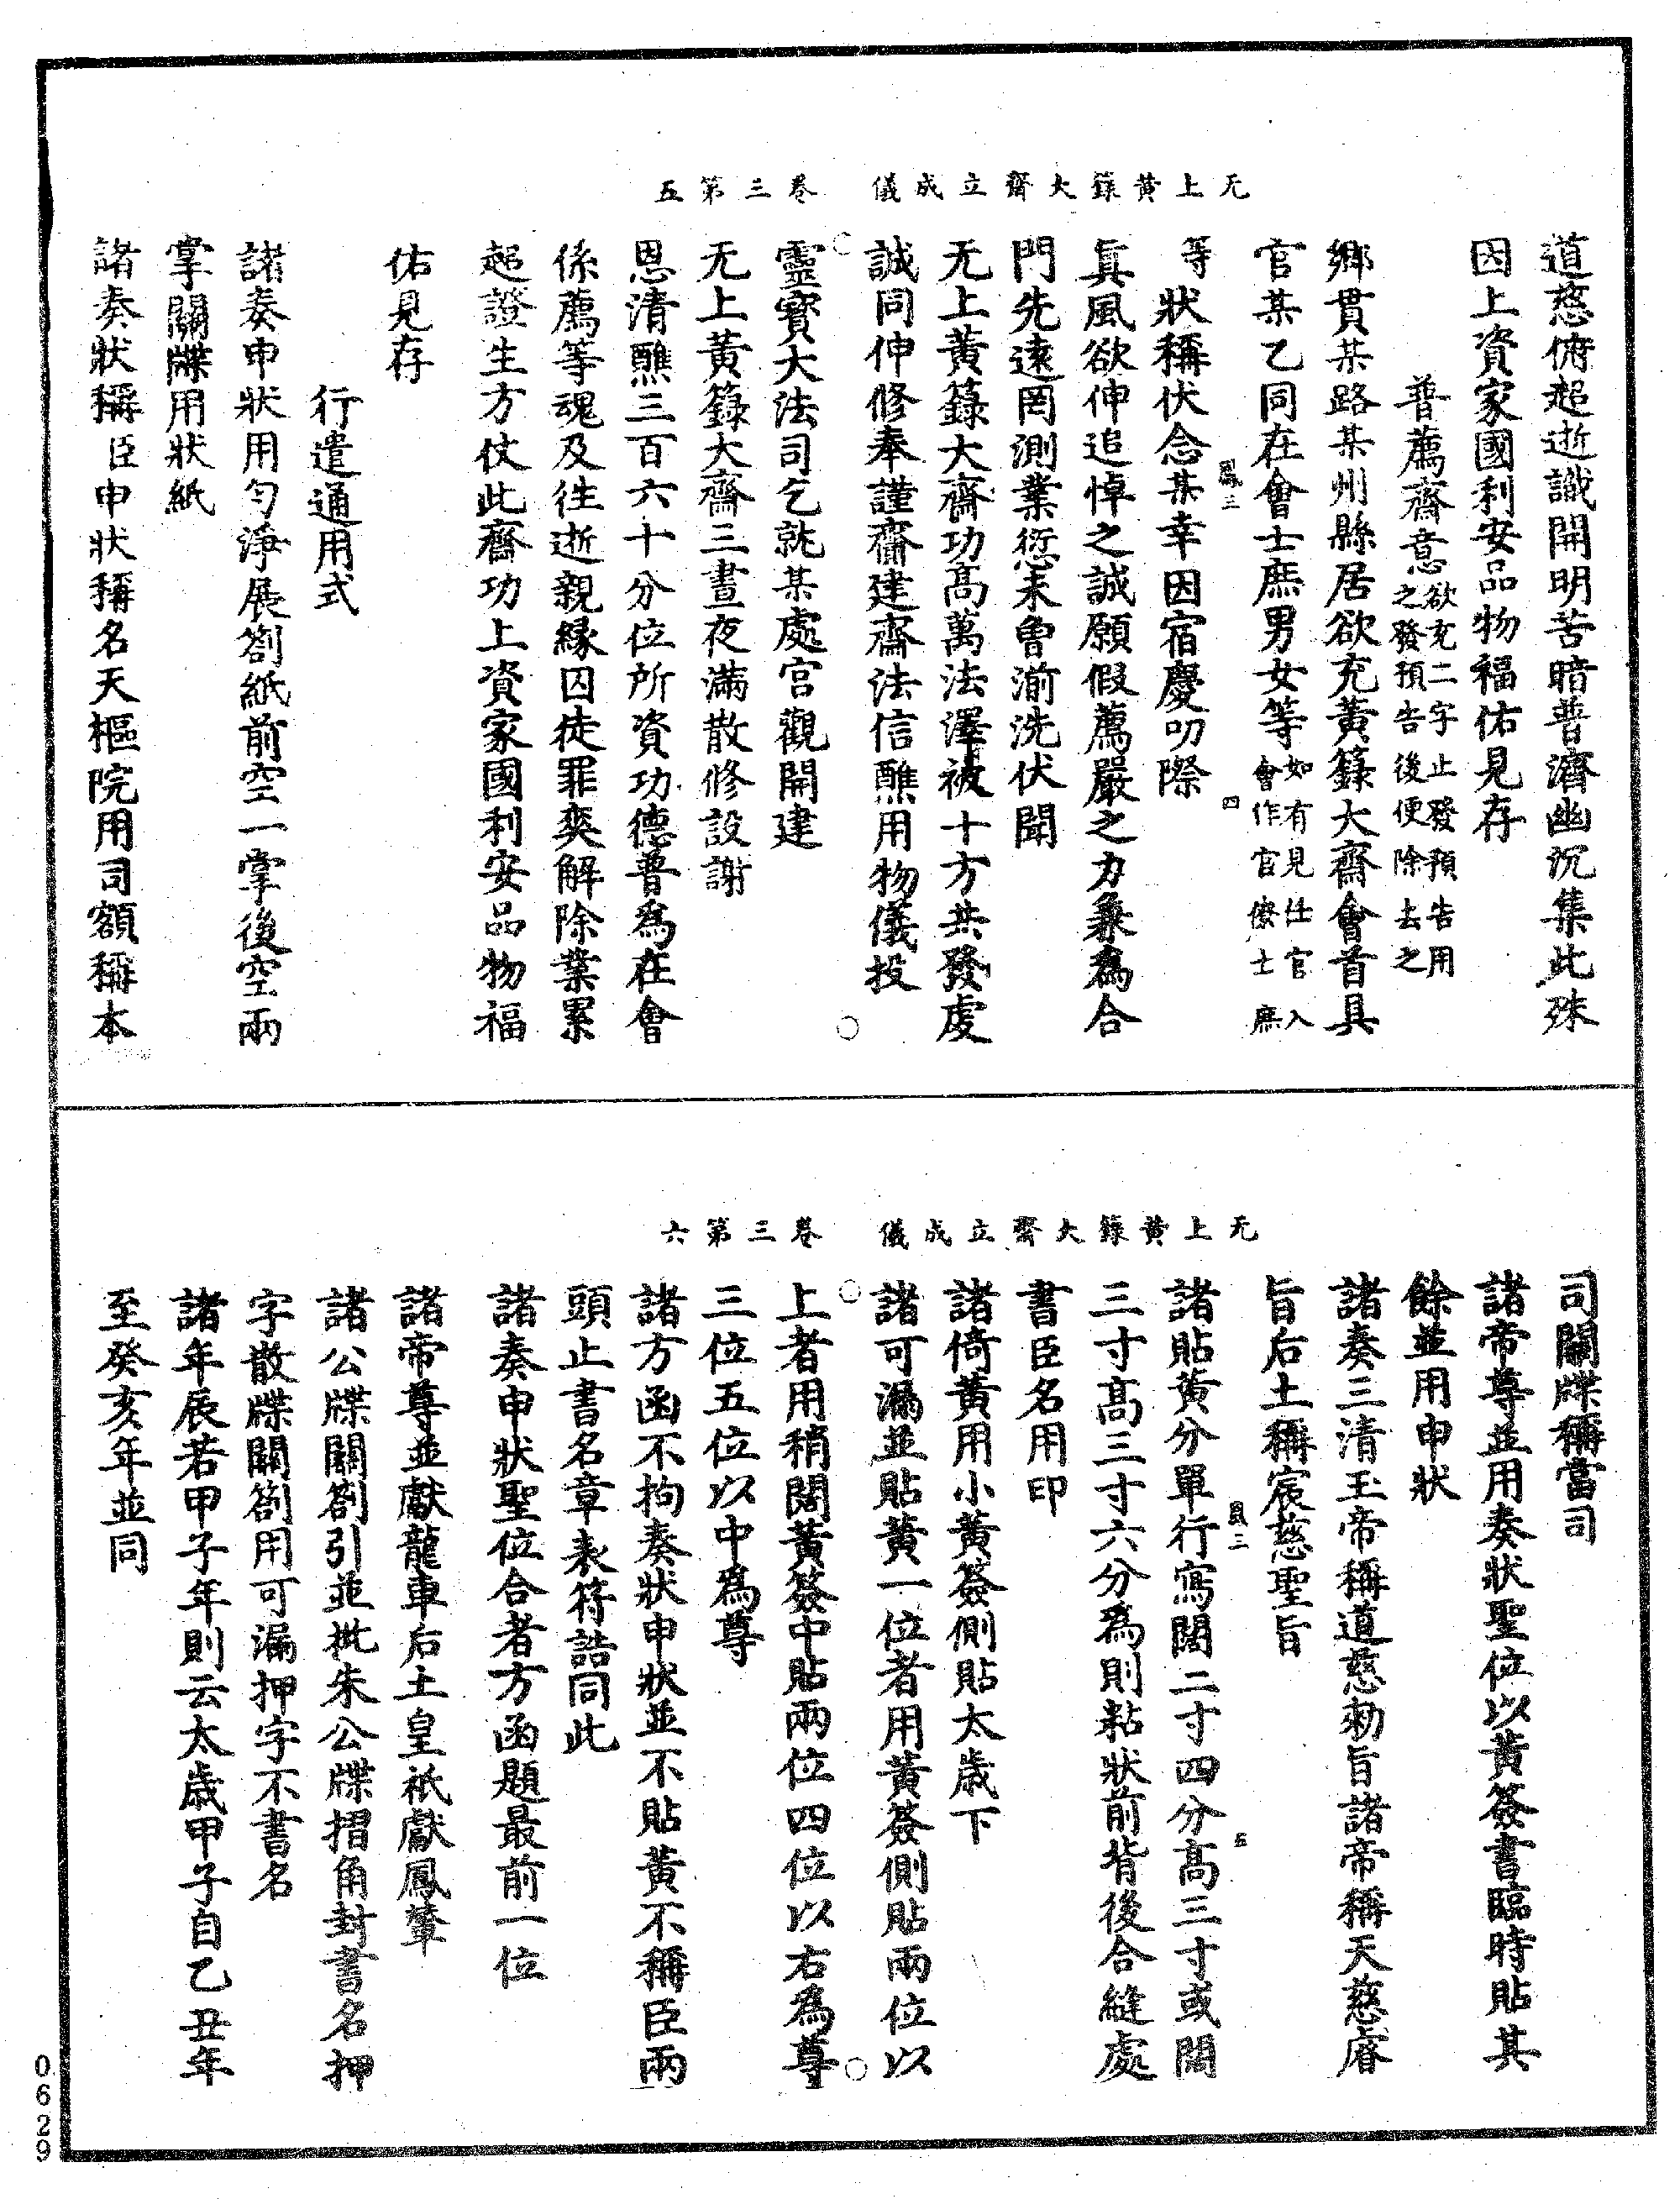 无上黃籙大齋立成儀　卷三第五
道慈俯超逝識開明苦暗普濟幽沉集此殊
因上資家國利安品物福佑見存
普薦齋意欲充二字止發預告用之發預告後便除去之
鄉貫某路某州縣居欲充黃籙大齋會首具
官某乙同在會士庶男女等如有見任官入會作官僚士庶
等狀稱伏念某幸因宿慶叨際
眞風欲伸追悼之誠願假薦嚴之力彖爲合
門先遠罔測業愆未曾湔洗伏聞
无上黃籙大齋功高萬法澤被十方共發虔
誠同伸修奉謹齋建齋法信醮用物儀投
靈寶大法司乞就某處宮觀開建
无上黃籙大齋三晝夜滿散修設謝
恩清醮三百六十分位所資功德普爲在會
係薦等魂及徃逝親緣囚徒罪爽解除業累
超證生方仗此齋功上資家國利安品物福
佑見存
行遣通用式
諸奏申狀用勻淨展劄紙前空一掌後空兩
掌關牒用狀紙
諸奏狀稱臣申狀稱名天樞院用司額稱本
鳳三　四
无上黃籙大齋立成儀　卷三第六
司關牒稱當司
諸帝尊並用奏狀聖位以黃簽書臨時貼其
餘並用申狀
諸奏三清玉帝稱道慈勑旨諸帝稱天慈睿
旨后土稱宸慈聖旨
諸貼黃分單行寫闊二寸四分高三寸或闊
三寸高三寸六分爲則粘狀前背後合縫處
書臣名用印
諸倚黃用小黃簽側貼太歲下
諸可漏並貼黃一位者用黃簽側貼兩位以
上者用稍闊黃簽中貼兩位四位以右爲尊
三位五位以中爲尊
諸方函不拘奏狀申狀並不貼黃不稱臣兩
頭止書名章表符誥同此
諸奏申狀聖位合者方函題最前一位
諸帝尊並獻龍車后土皇祇獻鳳輦
諸公牒關劄引並批朱公牒摺角封書名押
字散牒關劄用可漏押字不書名
諸年辰若甲子年則云太歲甲子自乙丑年
至癸亥年並同
鳳三　五
0629